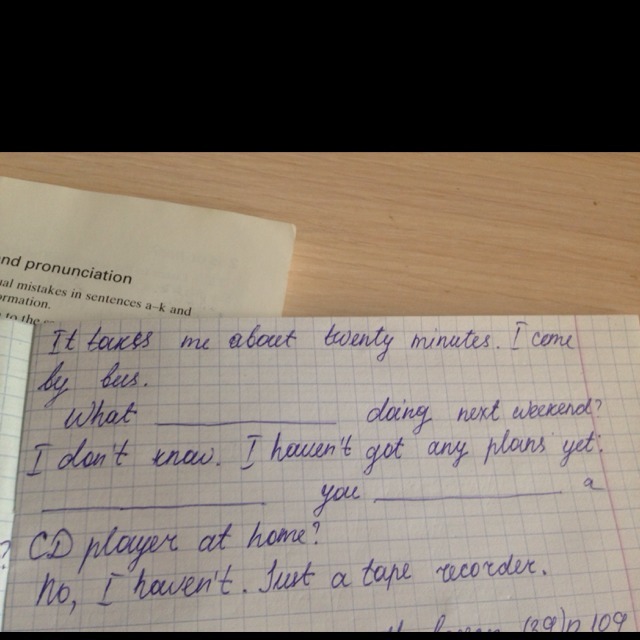 nd pronunciation
ual mistakes in sentences a–k and
ormation.
to the
It takes me about twenty minutes. I come
by bus.
What ____________ doing next weekend?
I don't know. I haven't got any plans yet.
____________ you ____________ a
? CD player at home?
No, I haven't. Just a tape recorder.
(39) p 109